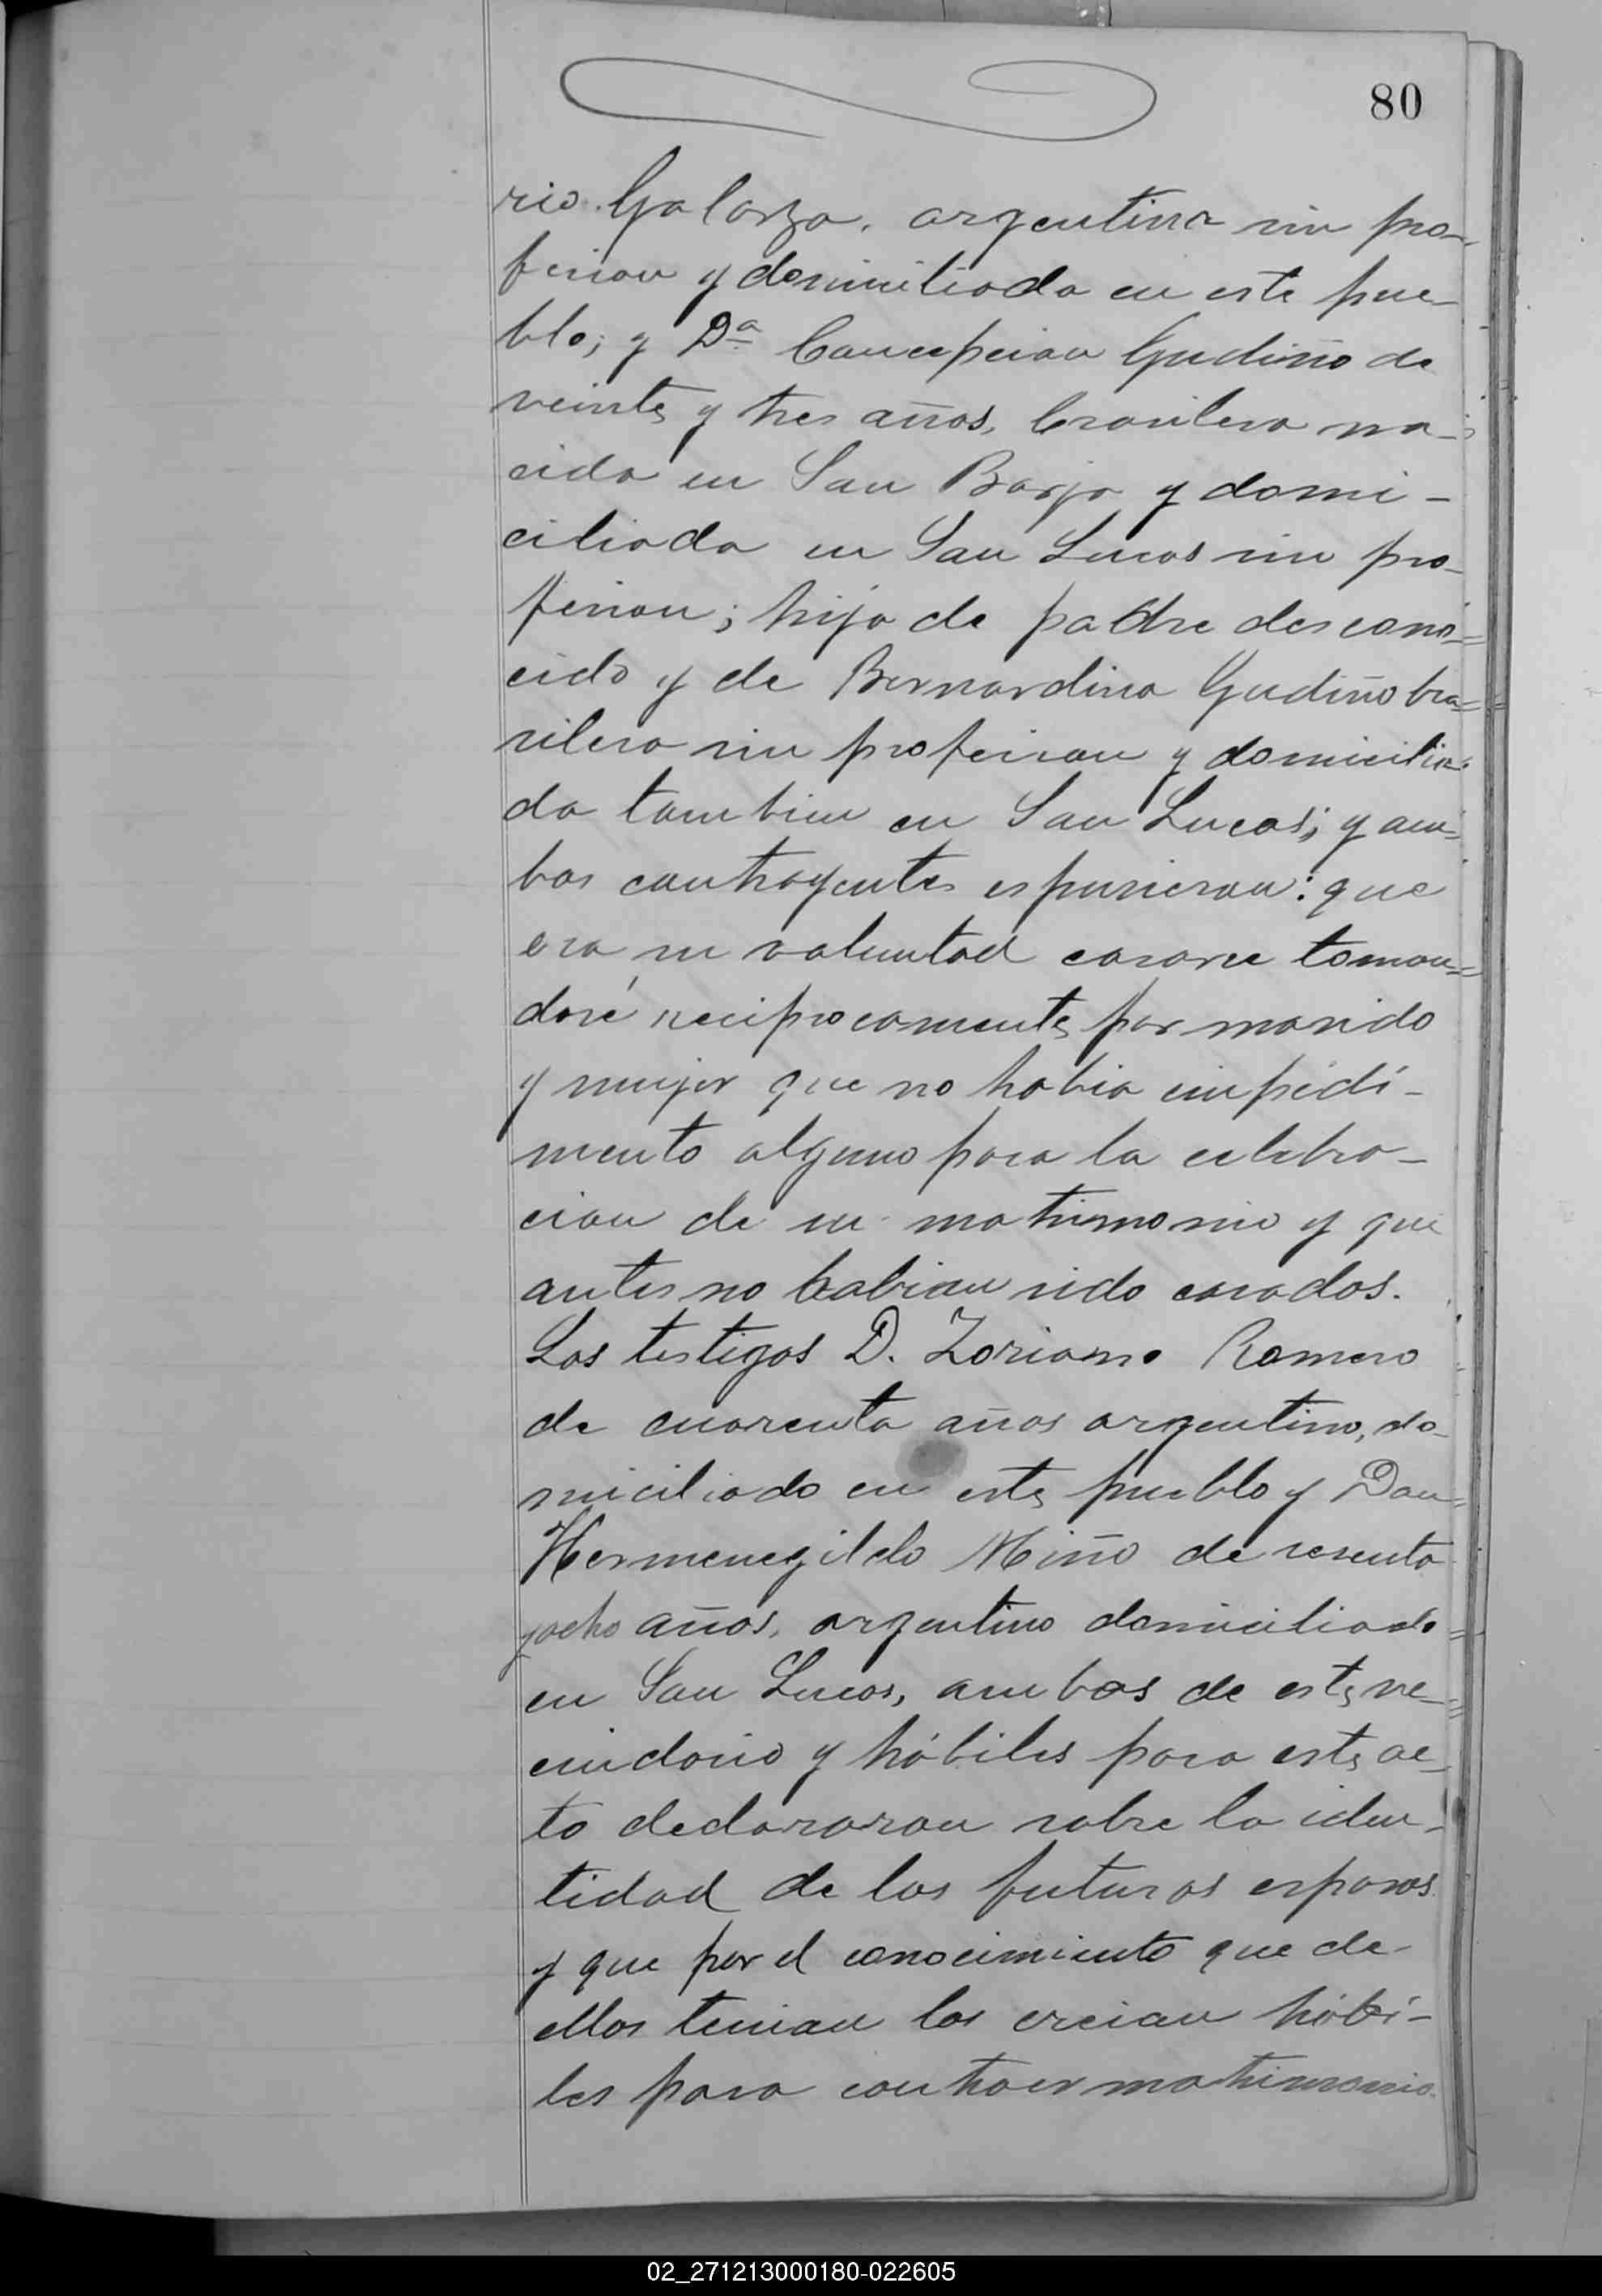 80
rio Galarza, argentina sin pro-
fesion y domiciliada en este pue-
blo; y Dª Concepcion Gudiño de
veinte y tres años, brasilera na-
cida en San Borja y domi-
ciliada en San Lucas sin pro-
fesion; hija de padre descono=
cido y de Bernardina Gudiño bra=
silera sin profesion y domicilia-
da tambien en San Lucas; y am-
bos contrayentes espusieron: que
era su voluntad casarse toman=
dosé reciprocamente por marido
y mujer que no habia impedi-
mento alguno para la celebra-
cion de su matrimonio y que
antes no habian sido casados.
Los testigos D. Zoriamo Romero
de cuarenta años argentino, do-
miciliado en este pueblo y Don
Hermenegildo Miño de sesenta
y ocho años, argentino domiciliado
en San Lucas, ambos de este ve=
cindario y hábiles para este ac-
to declararon sobre la iden-
tidad de los futuros esposos
y que por el conocimiento que de
ellos tenian los creian hábi-
les para contraer matrimonio.
02_271213000180-022605